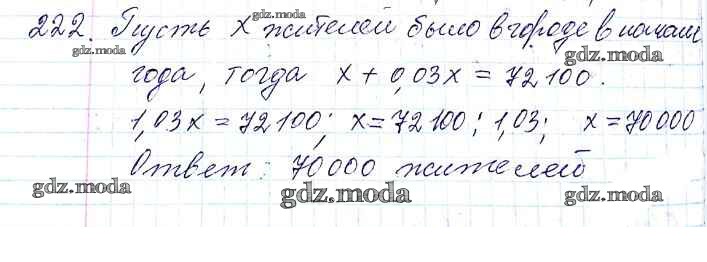 222. Пусть x жителей было в городе в начале
gdz.moda gdz.moda gdz.moda
года, тогда x + 0,03x = 72100.
1,03x = 72100; x = 72100 : 1,03; x = 70000
Ответ: 70000 жителей
gdz.moda gdz.moda gdz.moda